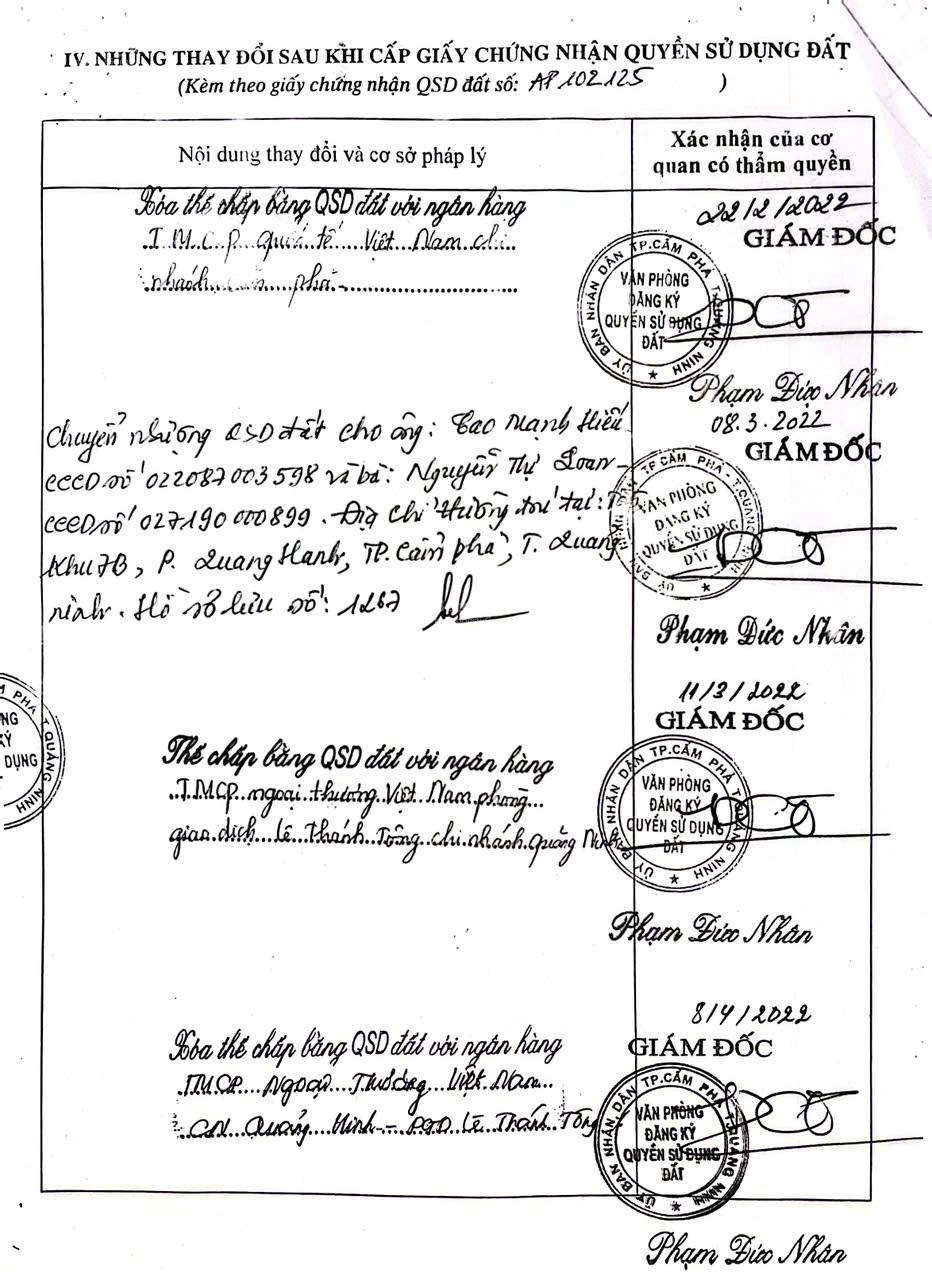 IV. NHỮNG THAY ĐỔI SAU KHI CẤP GIẤY CHỨNG NHẬN QUYỀN SỬ DỤNG ĐẤT
(Kèm theo giấy chứng nhận QSD đất số: AP 102125 )
Nội dung thay đổi và cơ sở pháp lý
Xác nhận của cơ
quan có thẩm quyền
Xóa thế chấp bằng QSD đất với ngân hàng
T.M.C.P. Quốc tế Việt Nam chi
nhánh Cẩm phả
22/2/2022
GIÁM ĐỐC
ỦY BAN NHÂN DÂN TP.CẨM PHẢ T.QUẢNG NINH
VĂN PHÒNG
ĐĂNG KÝ
QUYỀN SỬ DỤNG
ĐẤT
Phạm Đức Nhân
Chuyển nhượng QSD đất cho ông: Cao Mạnh Hiếu
CCCD số 022087003598 và bà: Nguyễn Thị Loan
CCCD số 027190000899. Địa chỉ thường trú tại: Tổ
Khu 7B, P. Quang Hanh, TP. Cẩm phả, T. Quảng
ninh. Hồ sơ lưu số: 1267
08.3.2022
GIÁM ĐỐC
ỦY BAN NHÂN DÂN TP.CẨM PHẢ - T.QUẢNG NINH
VĂN PHÒNG
ĐĂNG KÝ
QUYỀN SỬ DỤNG
ĐẤT
Phạm Đức Nhân
M PHẢ T.QUẢNG NINH
NG
KÝ
DỤNG
Thế chấp bằng QSD đất với ngân hàng
T.MCP ngoại thương Việt Nam phòng
giao dịch Lê Thánh Tông chi nhánh quảng Ninh
11/3/2022
GIÁM ĐỐC
ỦY BAN NHÂN DÂN TP.CẨM PHẢ T.QUẢNG NINH
VĂN PHÒNG
ĐĂNG KÝ
QUYỀN SỬ DỤNG
ĐẤT
Phạm Đức Nhân
Xóa thế chấp bằng QSD đất với ngân hàng
TMCP Ngoại Thương Việt Nam
CN Quảng Ninh - PGD Lê Thánh Tông
8/4/2022
GIÁM ĐỐC
ỦY BAN NHÂN DÂN TP.CẨM PHẢ T.QUẢNG NINH
VĂN PHÒNG
ĐĂNG KÝ
QUYỀN SỬ DỤNG
ĐẤT
Phạm Đức Nhân